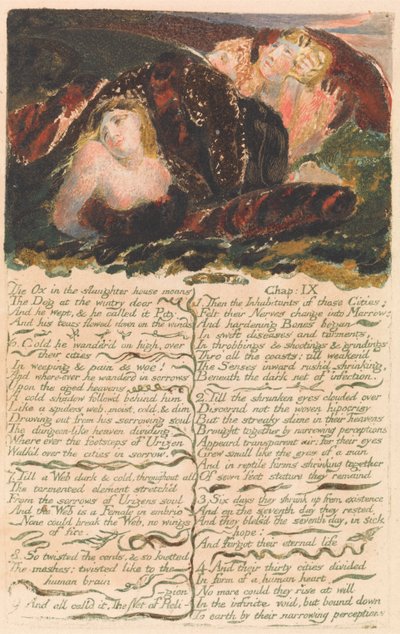 The Ox in the slaughter house moans
The Dog at the wintry door
And he wept, & he called it Pity
And his tears flowed down on the winds
6. Cold he wander'd on high, over
their cities
In weeping & pain & woe!
And where-ever he wanderd in sorrows
Upon the aged heavens
A cold shadow follow'd behind him
Like a spiders web, moist, cold, & dim
Drawing out from his sorrowing soul
The dungeon-like heaven dividing
Where ever the footsteps of Urizen
Walk'd over the cities in sorrow.
7. Till a Web dark & cold, throughout all
The tormented element stretch'd
From the sorrows of Urizens soul
And the Web is a Female in embrio
None could break the Web, no wings
of fire.
8. So twisted the cords, & so knotted
The meshes: twisted like to the
human brain
9. And all calld it, The Net of Reli-
-gion
Chap: IX
1. Then the Inhabitants of those Cities:
Felt their Nerves change into Marrow
And hardening Bones began
In swift diseases and torments,
In throbbings & shootings & grindings
Thro' all the coasts; till weaken'd
The Senses inward rush'd shrinking,
Beneath the dark net of infection.
2. Till the shrunken eyes clouded over
Discernd not the woven hipocrisy
But the streaky slime in their heavens
Brought together by narrowing perceptions
Appeard transparent air; for their eyes
Grew small like the eyes of a man
And in reptile forms shrinking together
Of seven feet stature they remaind
3. Six days they shrunk up from existence
And on the seventh day they rested
And they bless'd the seventh day, in sick
hope:
And forgot their eternal life
4. And their thirty cities divided
In form of a human heart
No more could they rise at will
In the infinite void, but bound down
To earth by their narrowing perceptions